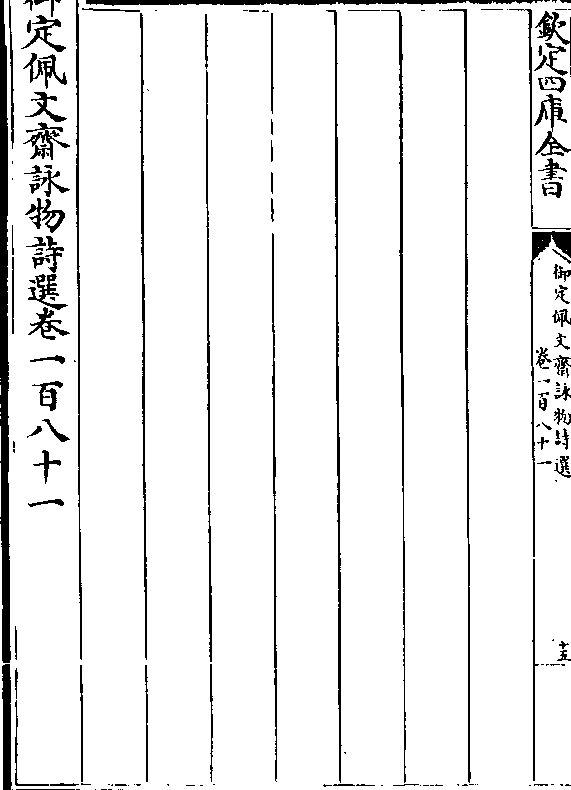 欽定四庫全書
御定佩文齋詠物詩選
卷一百八十一
十五
御定佩文齋詠物詩選卷一百八十一